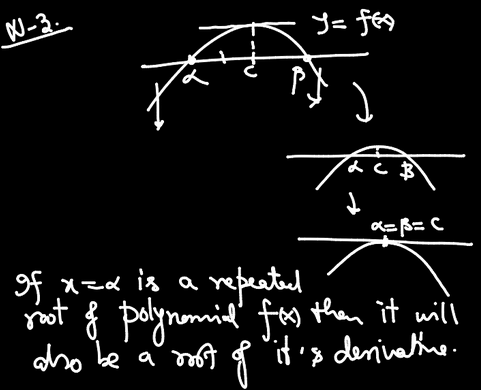 N-3.
y = f(x)
α C β
α C β
α = β = C
If x = α is a repeated
root of polynomial f(x) then it will
also be a root of it's derivative.